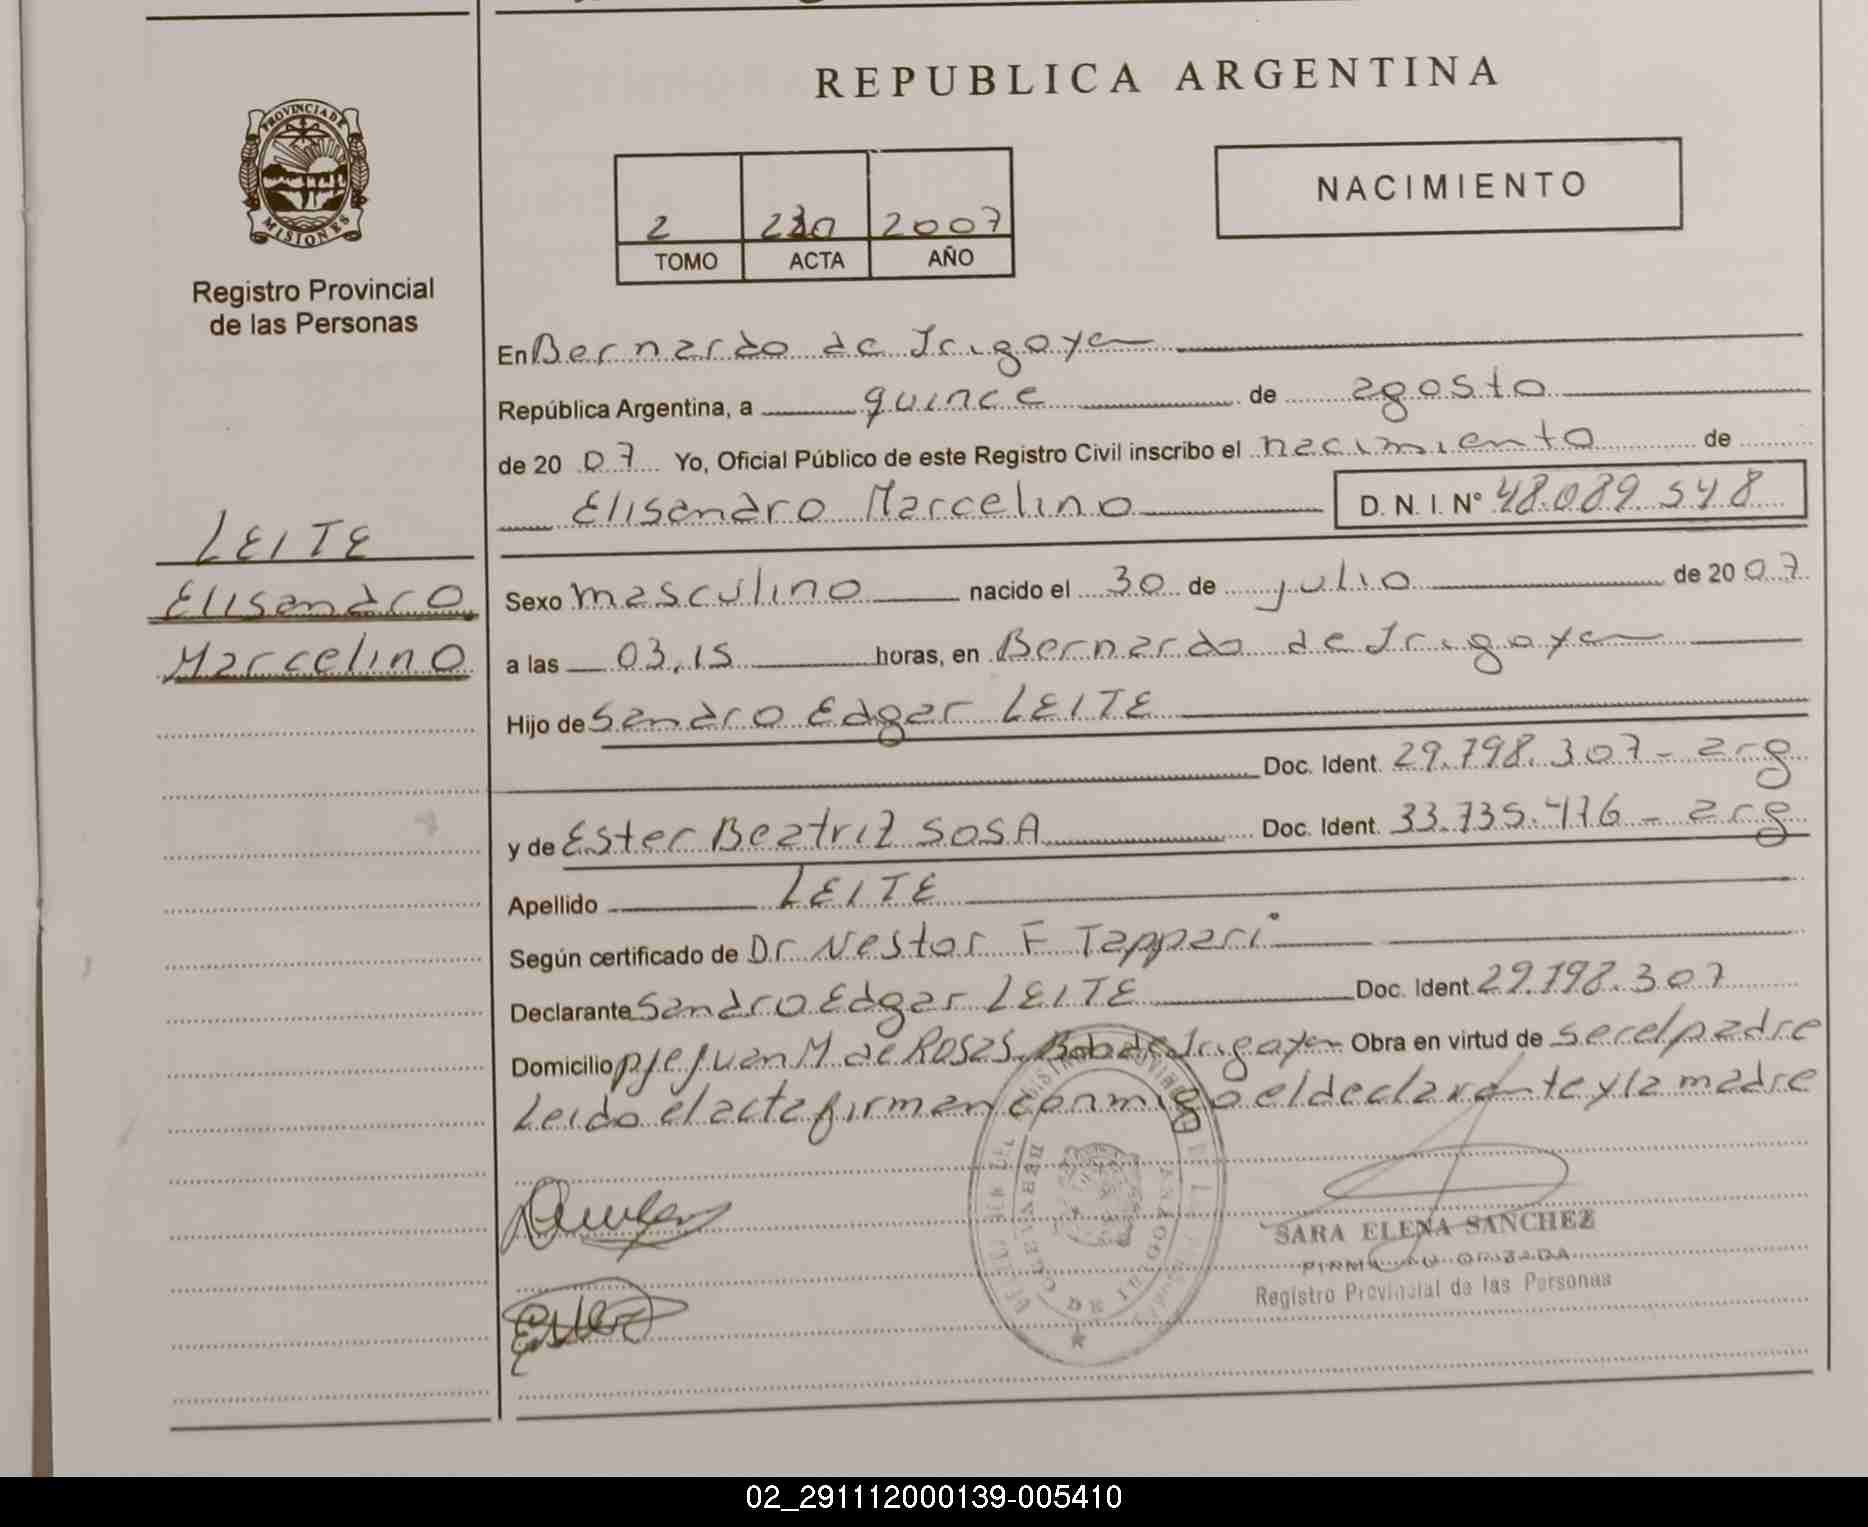 REPUBLICA ARGENTINA
PROVINCIA DE
MISIONES
Registro Provincial
de las Personas
NACIMIENTO
2 230 2007
TOMO ACTA AÑO
En Bernardo de Irigoyen
República Argentina, a quince de agosto
de 20 07 Yo, Oficial Público de este Registro Civil inscribo el nacimiento de
Elisandro Marcelino D. N. I. Nº 48.089.548
LEITE
Elisandro
Marcelino
Sexo masculino nacido el 30 de julio de 20 07
a las 03,15 horas, en Bernardo de Irigoyen
Hijo de Sandro Edgar LEITE
Doc. Ident. 29.798.307 - arg
y de Ester Beatriz SOSA Doc. Ident. 33.735.476 - arg
Apellido LEITE
Según certificado de Dr Nestor F Tappari
Declarante Sandro Edgar LEITE Doc. Ident. 29.798.307
Domicilio pje Juan M de Rosas. Bdo de Irigoyen Obra en virtud de ser el padre
Leido el acta firman conmigo el declarante y la madre
SARA ELENA SANCHEZ
FIRMA AUTORIZADA
Registro Provincial de las Personas
02_291112000139-005410